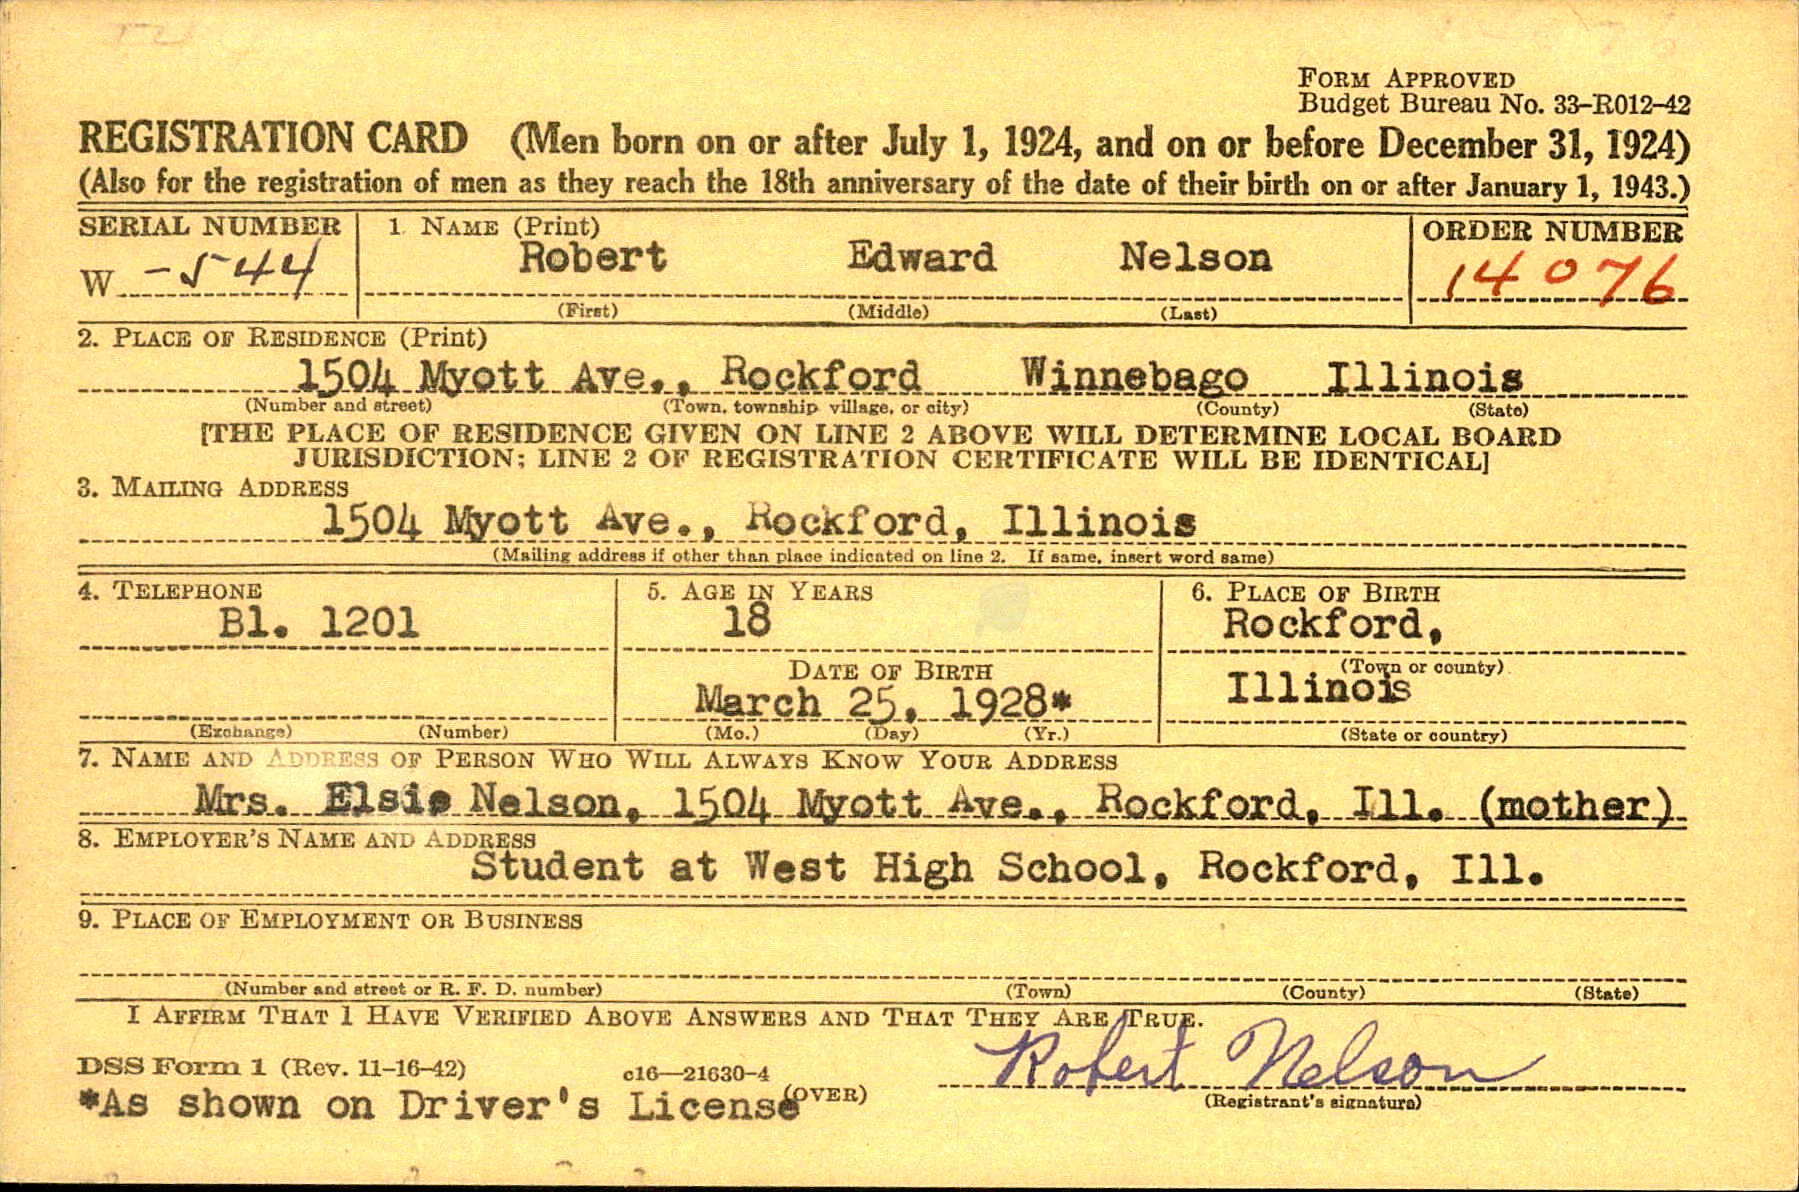 FORM APPROVED
Budget Bureau No. 33-R012-42
REGISTRATION CARD (Men born on or after July 1, 1924, and on or before December 31, 1924)
(Also for the registration of men as they reach the 18th anniversary of the date of their birth on or after January 1, 1943.)
SERIAL NUMBER 1. NAME (Print) ORDER NUMBER
W -544 Robert Edward Nelson 14076
(First) (Middle) (Last)
2. PLACE OF RESIDENCE (Print)
1504 Myott Ave., Rockford Winnebago Illinois
(Number and street) (Town, township, village, or city) (County) (State)
[THE PLACE OF RESIDENCE GIVEN ON LINE 2 ABOVE WILL DETERMINE LOCAL BOARD
JURISDICTION; LINE 2 OF REGISTRATION CERTIFICATE WILL BE IDENTICAL]
3. MAILING ADDRESS
1504 Myott Ave., Rockford, Illinois
(Mailing address if other than place indicated on line 2. If same, insert word same)
4. TELEPHONE 5. AGE IN YEARS 6. PLACE OF BIRTH
Bl. 1201 18 Rockford,
DATE OF BIRTH (Town or county)
March 25, 1928* Illinois
(Exchange) (Number) (Mo.) (Day) (Yr.) (State or country)
7. NAME AND ADDRESS OF PERSON WHO WILL ALWAYS KNOW YOUR ADDRESS
Mrs. Elsie Nelson, 1504 Myott Ave., Rockford, Ill. (mother)
8. EMPLOYER'S NAME AND ADDRESS
Student at West High School, Rockford, Ill.
9. PLACE OF EMPLOYMENT OR BUSINESS
(Number and street or R. F. D. number) (Town) (County) (State)
I AFFIRM THAT I HAVE VERIFIED ABOVE ANSWERS AND THAT THEY ARE TRUE.
DSS Form 1 (Rev. 11-16-42) c16—21630-4 Robert Nelson
*As shown on Driver's License (OVER) (Registrant's signature)